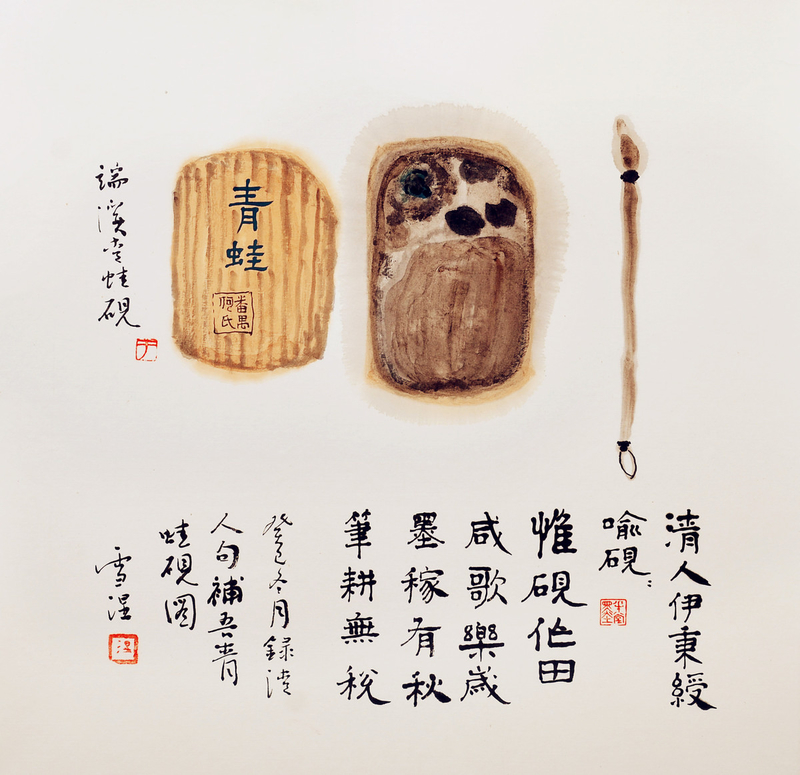 青蛙
番禺
何氏
端溪青蛙硯
清人伊秉綬
喻硯：
惟硯作田
咸歌樂歲
墨稼有秋
筆耕無稅
癸巳冬月錄清
人句補吾青
蛙硯圖
雪